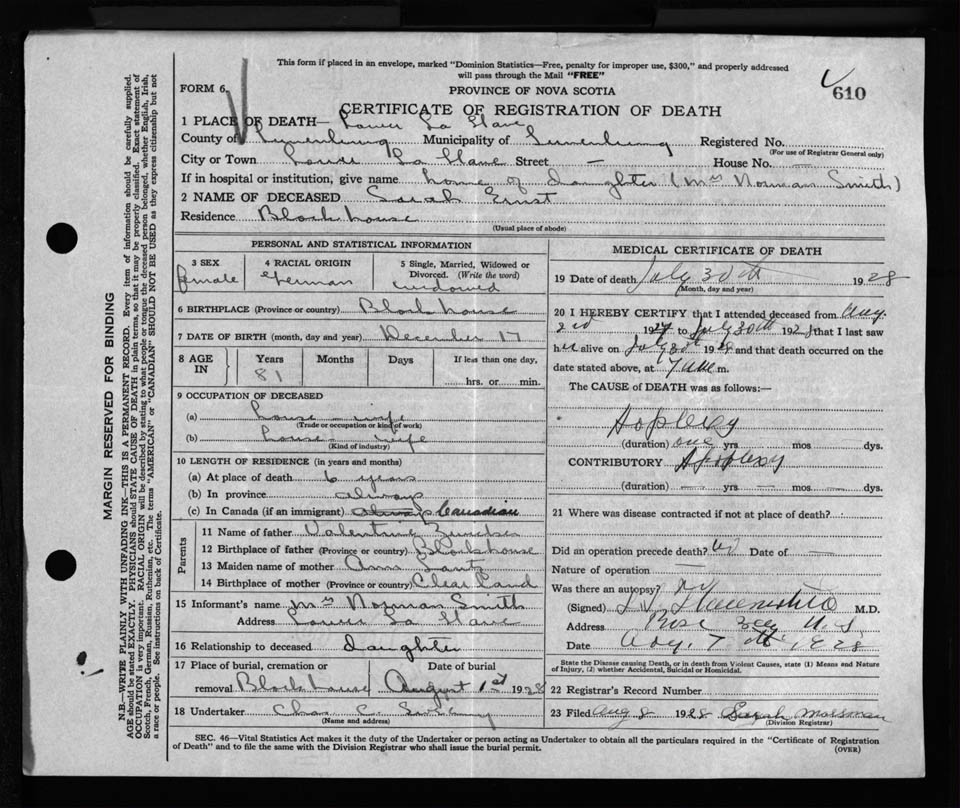 This form if placed in an envelope, marked "Dominion Statistics—Free, penalty for improper use, $300," and properly addressed
will pass through the Mail "FREE"
FORM 6.
PROVINCE OF NOVA SCOTIA
610
CERTIFICATE OF REGISTRATION OF DEATH
1 PLACE OF DEATH— Lower La Have
County of Lunenburg Municipality of Lunenburg Registered No.
(For use of Registrar General only)
City or Town Lower La Have Street — House No. —
If in hospital or institution, give name home of Daughter (Mrs Norman Smith)
2 NAME OF DECEASED Sarah Ernst
Residence Blockhouse
(Usual place of abode)
PERSONAL AND STATISTICAL INFORMATION
3 SEX 4 RACIAL ORIGIN 5 Single, Married, Widowed or
Divorced. (Write the word)
female German widowed
6 BIRTHPLACE (Province or country) Blockhouse
7 DATE OF BIRTH (month, day and year) December 17
8 AGE IN Years Months Days If less than one day,
81 hrs. or min.
9 OCCUPATION OF DECEASED
(a) house-wife
(Trade or occupation or kind of work)
(b) house-wife
(Kind of industry)
10 LENGTH OF RESIDENCE (in years and months)
(a) At place of death 6 years
(b) In province always
(c) In Canada (if an immigrant) always Canadian
Parents
11 Name of father
12 Birthplace of father (Province or country) Blockhouse
13 Maiden name of mother Ann
14 Birthplace of mother (Province or country) Clearland
15 Informant's name Mrs Norman Smith
Address Lower La Have
16 Relationship to deceased daughter
17 Place of burial, cremation or Date of burial
removal Blockhouse August 1st 1928
18 Undertaker Chas C.
(Name and address)
MEDICAL CERTIFICATE OF DEATH
19 Date of death July 30th 1928
(Month, day and year)
20 I HEREBY CERTIFY that I attended deceased from Aug.
2nd 1927 to July 30th 1928 that I last saw
her alive on July 30th 1928 and that death occurred on the
date stated above, at 7 m.
The CAUSE of DEATH was as follows:
Apoplexy
(duration) one yrs mos dys.
CONTRIBUTORY Apoplexy
(duration) — yrs — mos — dys.
21 Where was disease contracted if not at place of death?
Did an operation precede death? No Date of —
Nature of operation —
Was there an autopsy? No
(Signed) M.D.
Address Rose Bay N.S
Date Aug. 7th 1928
State the Disease causing Death, or in death from Violent Causes, state (1) Means and Nature
of Injury, (2) whether Accidental, Suicidal or Homicidal.
22 Registrar's Record Number
23 Filed Aug 8 1928 Sarah Mossman
(Division Registrar)
SEC. 46—Vital Statistics Act makes it the duty of the Undertaker or person acting as Undertaker to obtain all the particulars required in the "Certificate of Registration
of Death" and to file the same with the Division Registrar who shall issue the burial permit.
(OVER)
MARGIN RESERVED FOR BINDING
N.B.—WRITE PLAINLY WITH UNFADING INK—THIS IS A PERMANENT RECORD. Every item of information should be carefully supplied.
AGE should be stated EXACTLY. PHYSICIANS should STATE CAUSE OF DEATH in plain terms, so that it may be properly classified. Exact statement of
OCCUPATION is very important. RACIAL ORIGIN will be described by stating to what people or tongue the deceased person belonged, whether English, Irish,
Scotch, French, German, Russian, Ruthenian, etc. The terms "AMERICAN" or "CANADIAN" SHOULD NOT BE USED as they express citizenship but not
a race or people. See instructions on back of Certificate.